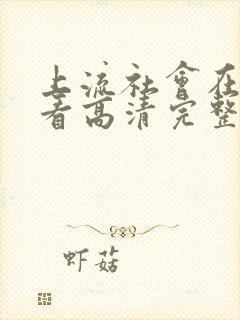 上流社會在
看高清完整
虾菇